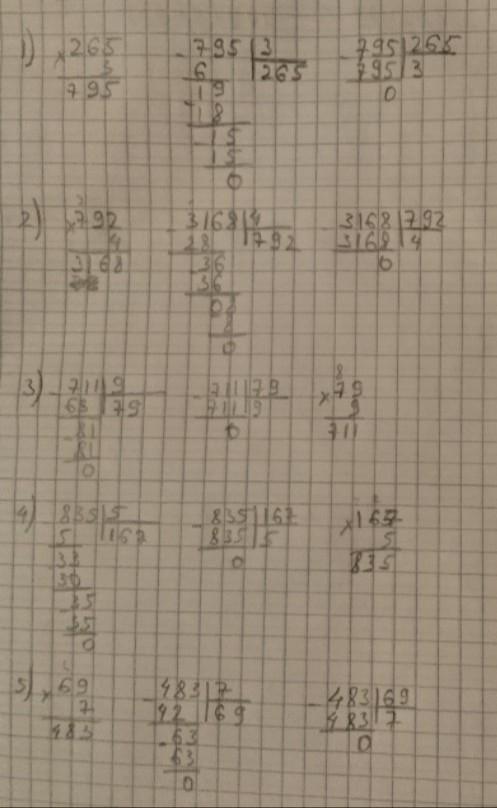 1) ×265 -795|3 -795|265
3 6 |265 795|3
795 -19 0
-18
-15
15
0
2) ×792 -3168|4 -3168|792
4 28 |792 3168|4
3168 -36 0
36
08
8
0
3) -711|9 -711|79 ×79
63 |79 711|9 9
-81 0 711
81
0
4) 835|5 -835|167 ×167
5 |167 835|5 5
33 0 835
30
35
35
0
5) ×69 -483|7 -483|69
7 42 |69 483|7
483 -63 0
63
0